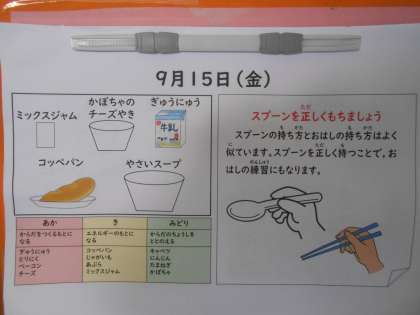 9月15日(金)
ミックスジャム
かぼちゃの
チーズやき
ぎゅうにゅう
牛乳
コッペパン
やさいスープ
あか
き
みどり
からだをつくるもとに
なる
エネルギーのもとに
なる
からだのちょうしを
ととのえる
ぎゅうにゅう
とりにく
ベーコン
チーズ
コッペパン
じゃがいも
あぶら
ミックスジャム
キャベツ
にんじん
たまねぎ
かぼちゃ
スプーンを正しくもちましょう
スプーンの持ち方とおはしの持ち方はよく
似ています。スプーンを正しく持つことで、お
はしの練習にもなります。